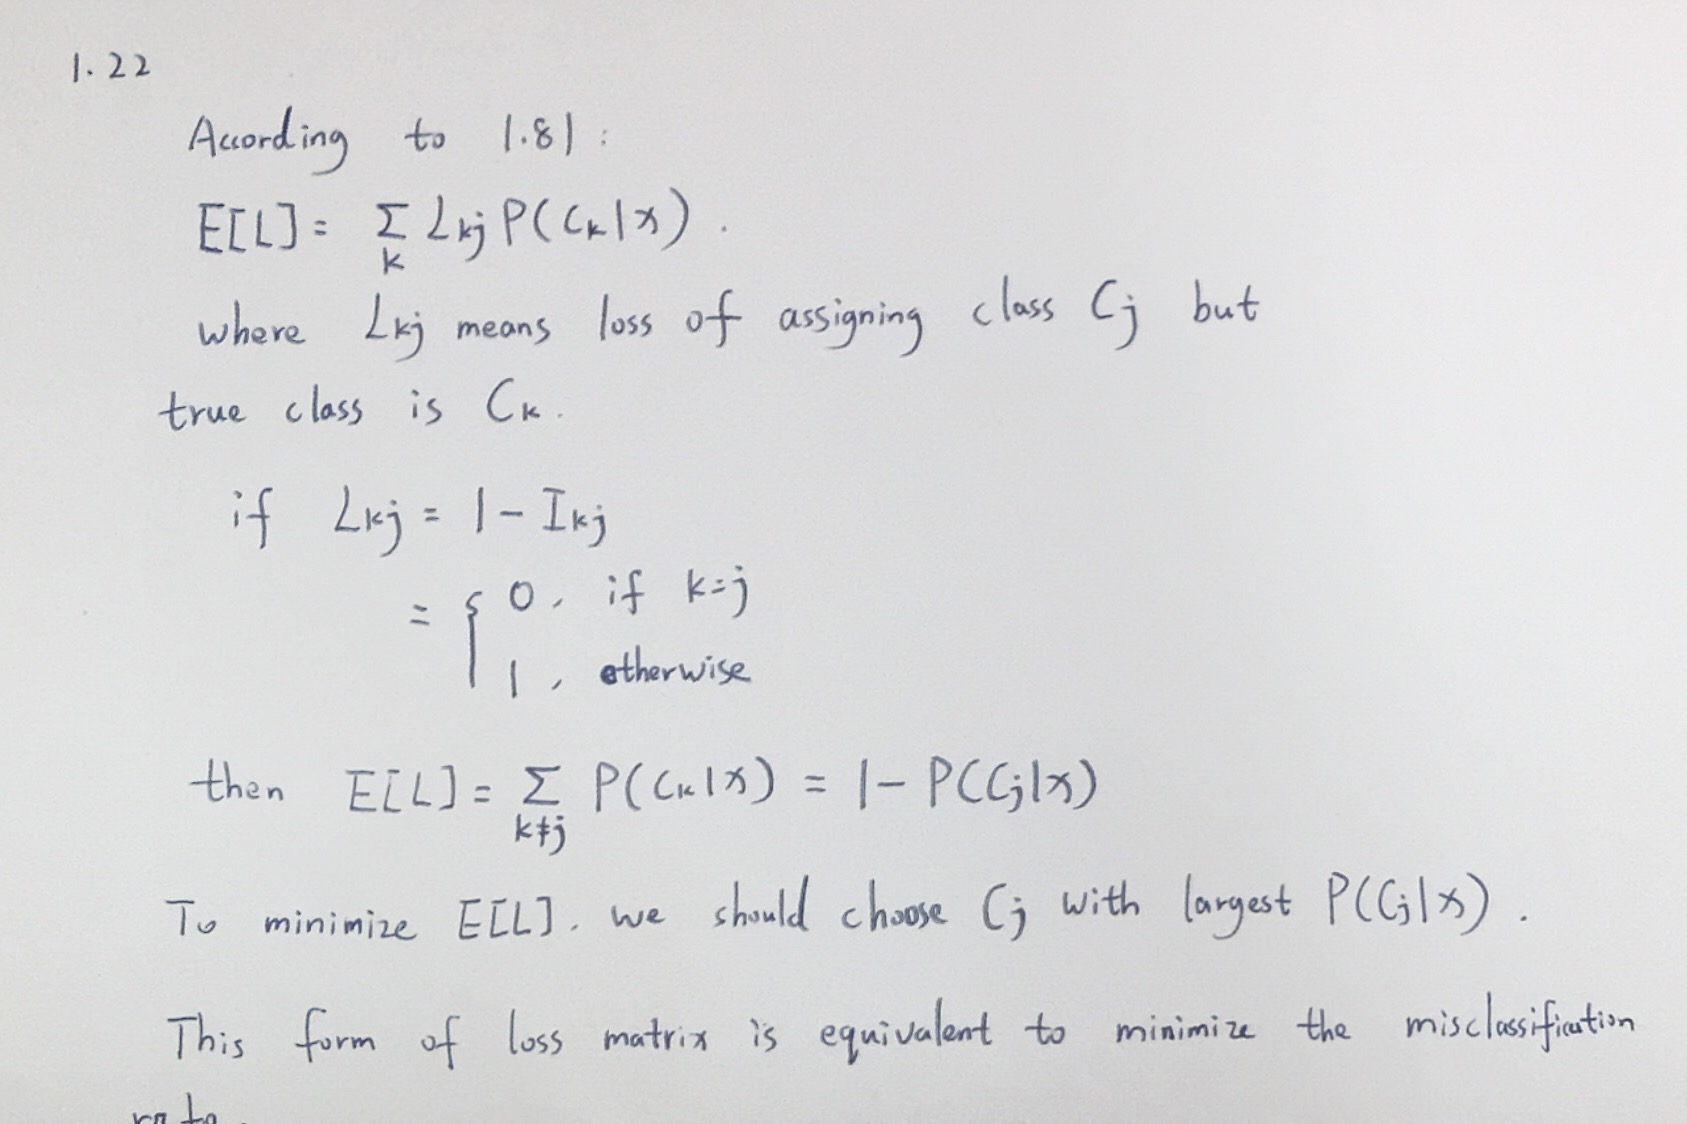 1.22
According to 1.81:
E[L] = Σ_k L_kj P(C_k|x).
where L_kj means loss of assigning class C_j but
true class is C_k.
if L_kj = 1 - I_kj
= { 0, if k=j
1, otherwise
then E[L] = Σ_{k≠j} P(C_k|x) = 1 - P(C_j|x)
To minimize E[L], we should choose C_j with largest P(C_j|x).
This form of loss matrix is equivalent to minimize the misclassification
rate.